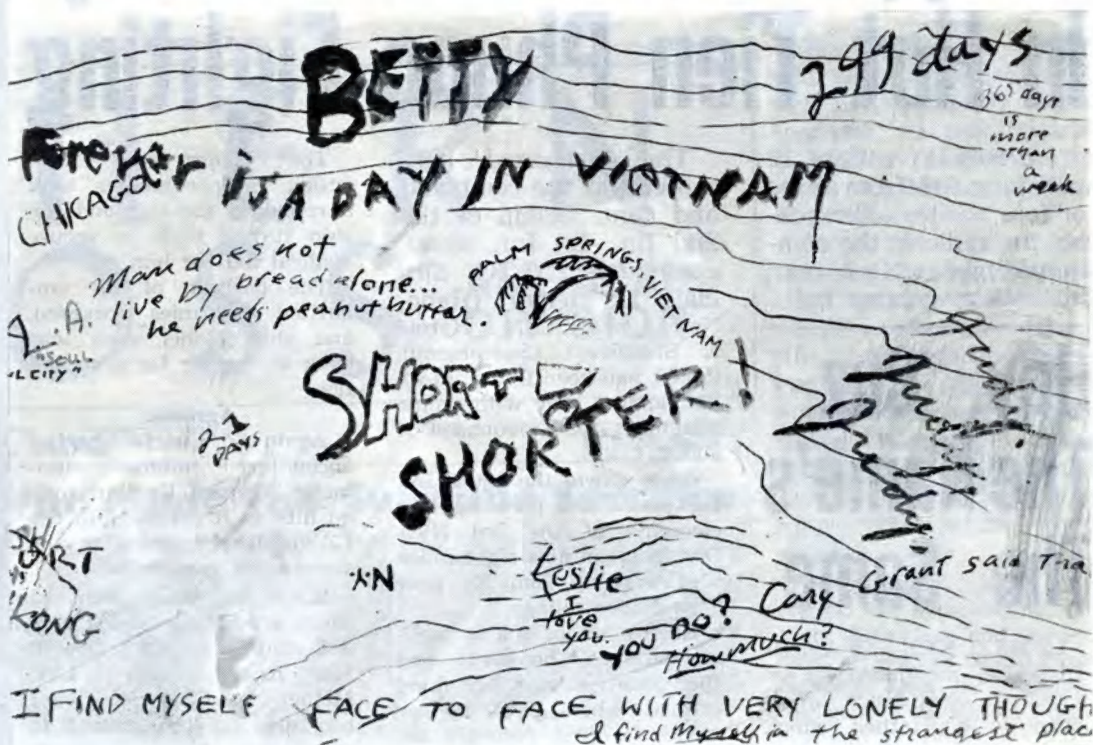 BETTY
299 days
365 days
is
more
THAN
a
week
Forever IS A DAY IN VIETNAM
CHICAGO
Man does not
live by bread alone...
he needs peanut butter.
L.A.
"SOUL
CITY"
PALM SPRINGS, VIETNAM
SHORT
SHORTER!
21
DAYS
Judy!
Judy!
Judy!
Cary Grant said Tha
KONG
Leslie
I
love
you.
YOU DO?
How much?
I FIND MYSELF FACE TO FACE WITH VERY LONELY THOUGH
I find Myself in the strangest plac